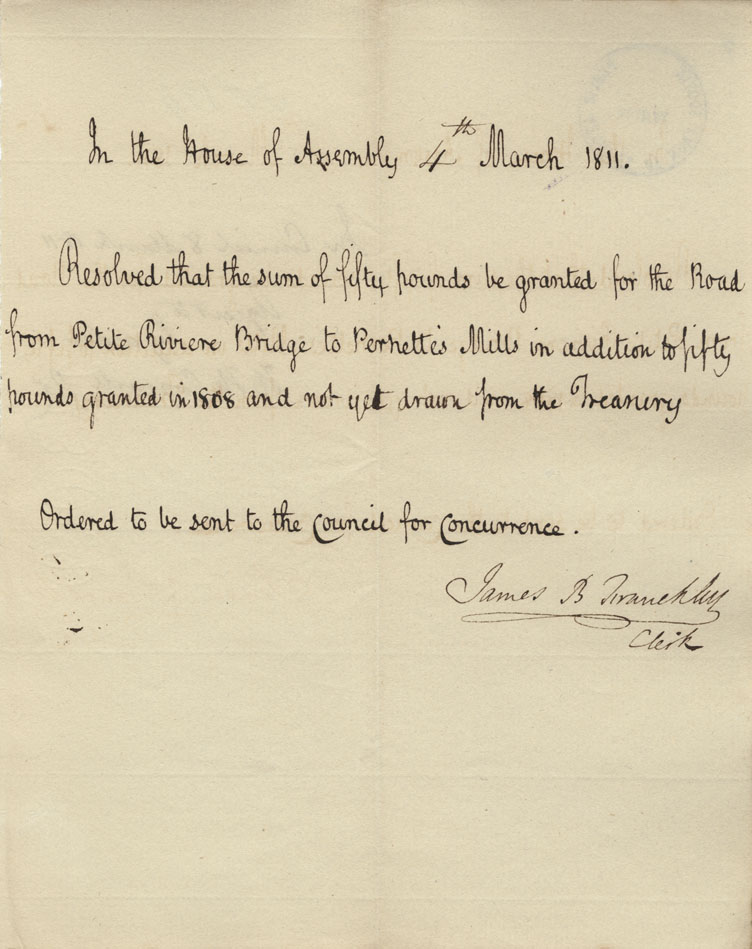 In the House of Assembly 4th March 1811.
Resolved that the sum of fifty pounds be granted for the Road
from Petite Riviere Bridge to Pernette's Mills in addition to fifty
pounds granted in 1808 and not yet drawn from the Treasury
Ordered to be sent to the Council for Concurrence.
James B Franckley
Clerk